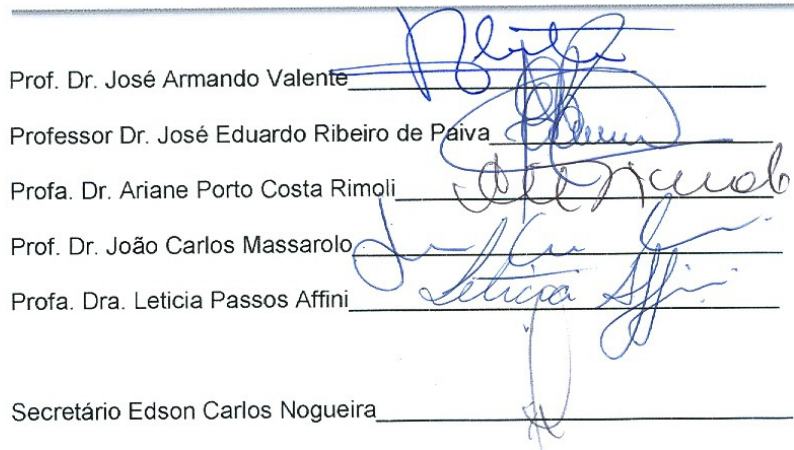 Prof. Dr. José Armando Valente
Professor Dr. José Eduardo Ribeiro de Paiva
Profa. Dr. Ariane Porto Costa Rimoli
Prof. Dr. João Carlos Massarolo
Profa. Dra. Leticia Passos Affini
Leticia Affini
Secretário Edson Carlos Nogueira